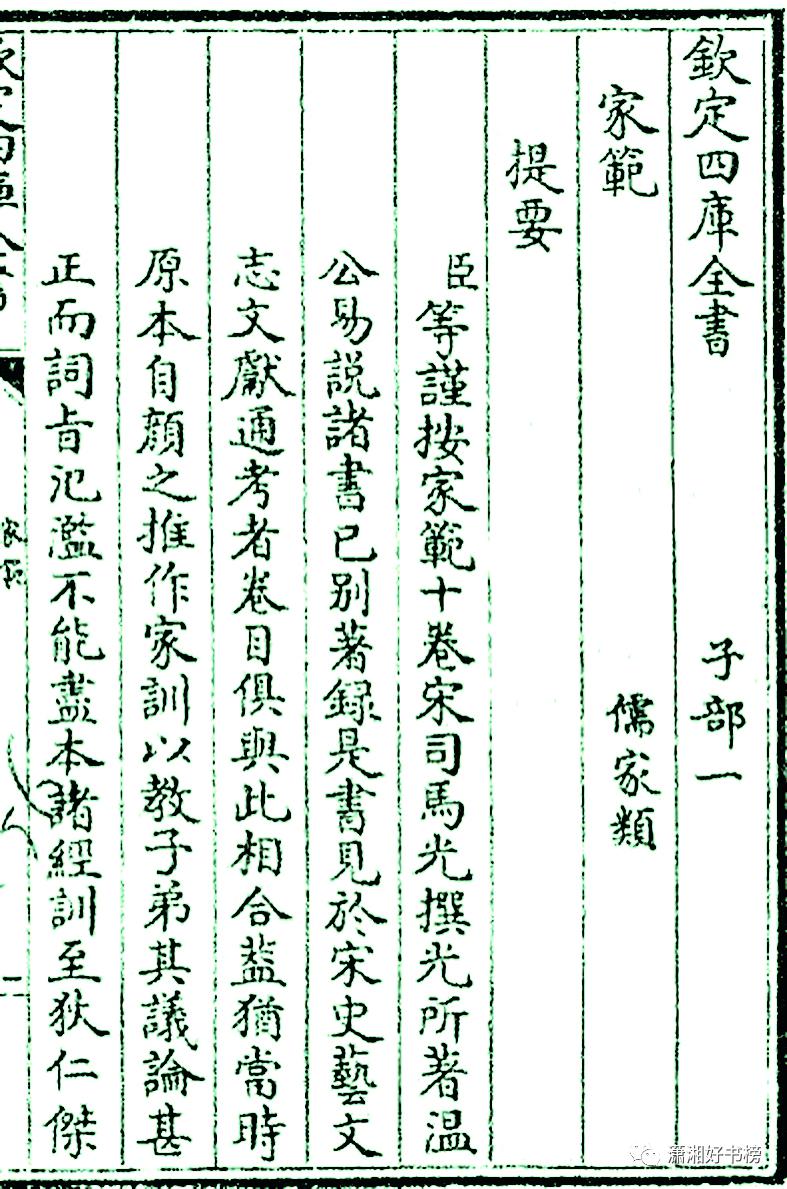 欽定四庫全書 子部一
家範 儒家類
提要
臣等謹按家範十卷宋司馬光撰光所著溫
公易說諸書已別著錄是書見於宋史藝文
志文獻通考者卷目俱與此相合蓋猶當時
原本自顔之推作家訓以教子弟其議論甚
正而詞旨氾濫不能盡本諸經訓至狄仁傑
瀟湘好书榜